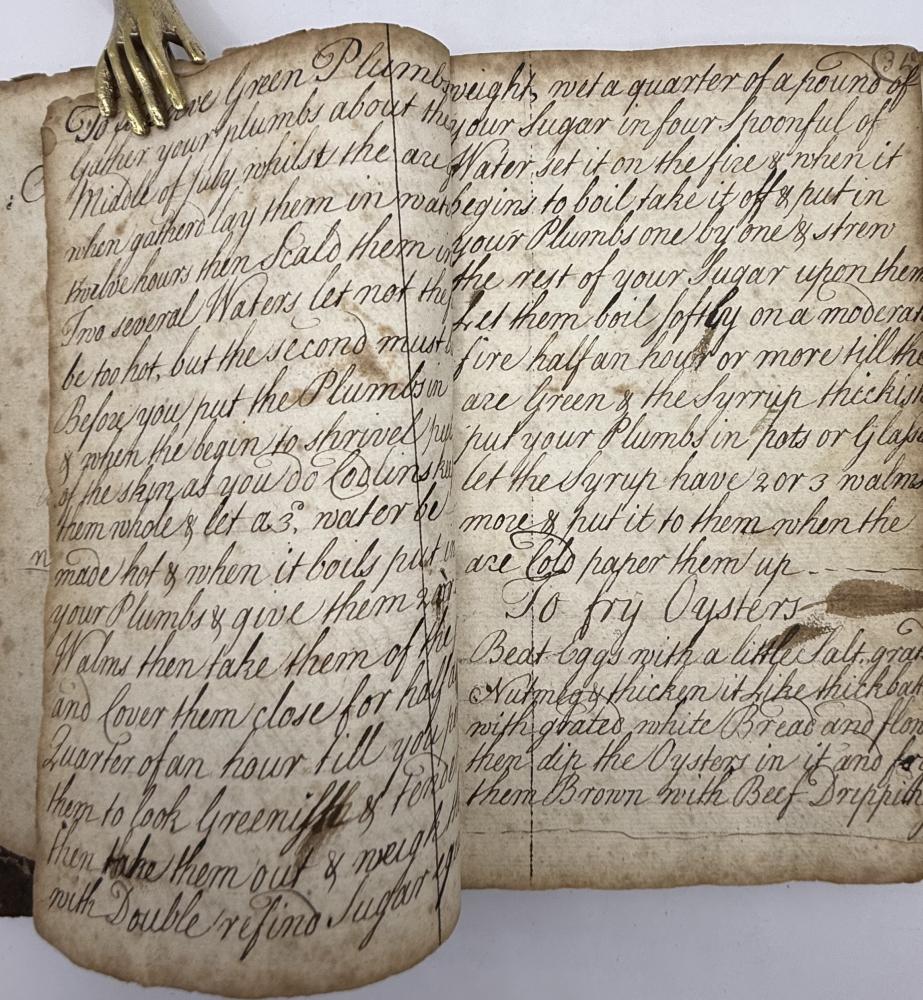 To ve Green Plumbs
Gather your plumbs about the
Middle of July whilst the are
when gatherd lay them in wat
twelve hours then Scald them in
Two several Waters let not the
be too hot, but the second must
Before you put the Plumbs in
& when the begin to shrivel
of the skin as you do Codlins
them whole & let a 3d. water be
made hot & when it boils put in
your Plumbs & give them 2
Walms then take them of the
and Cover them close for half a
Quarter of an hour till you
them to look Greenish & Tende
then take them out & weigh
with Double refind Sugar
weight, wet a quarter of a pound of
your Sugar in four Spoonful of
Water set it on the fire & when it
begins to boil take it off & put in
your Plumbs one by one & strew
the rest of your Sugar upon them
Let them boil softly on a moderat
fire half an hour or more till the
are Green & the Syrrup thickish
put your Plumbs in pots or Glass
let the Syrup have 2 or 3 walms
more & put it to them when the
are Cold paper them up
To fry Oysters
Beat Eggs with a little Salt, grat
Nutmeg & thicken it Like thick bat
with grated white Bread and flow
then dip the Oysters in it and
them Brown with Beef Dripping